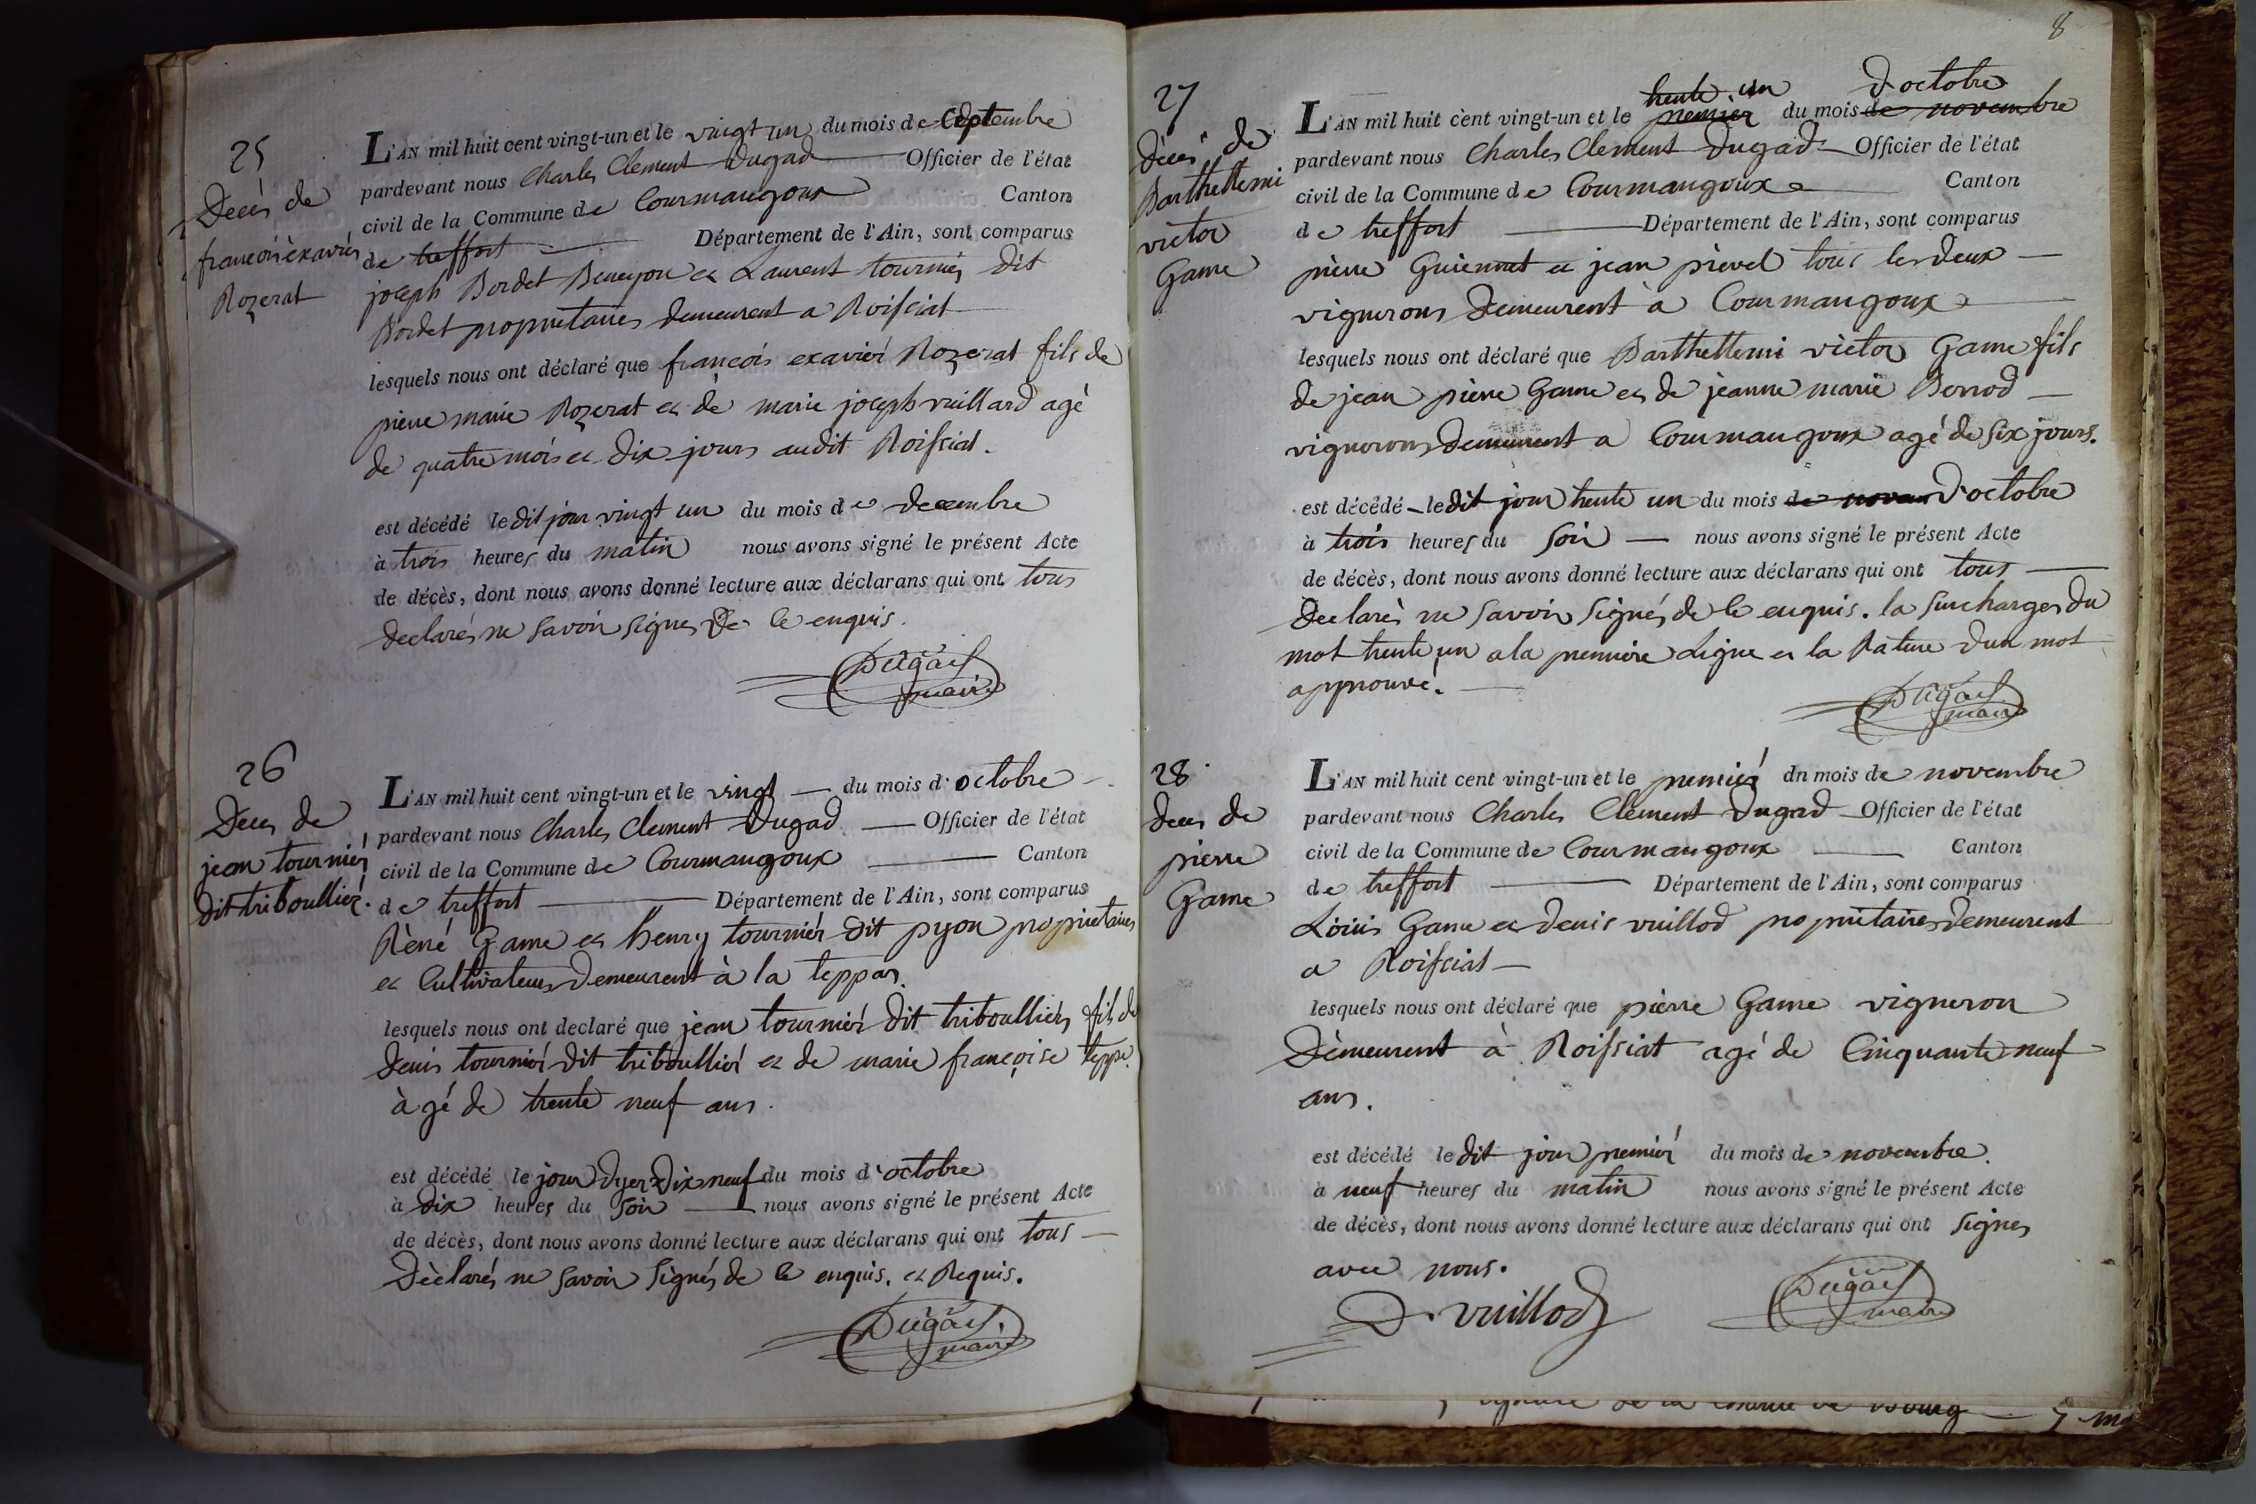 25
Decès de
francois exavier
Rozerat
L'AN mil huit cent vingt-un et le vingt un du mois de Septembre
pardevant nous Charles Clement Dugad Officier de l'état
civil de la Commune de Courmangoux Canton
de treffort Département de l'Ain, sont comparus
joseph Bordet Beneyon et Laurent tournier dit
Bordet proprietaires demeurent a Roissiat
lesquels nous ont déclaré que francois exavier Rozerat fils de
pierre marie Rozerat et de marie joseph vuillard agé
de quatre mois et dix jours audit Roissiat.
est décédé le dit jour vingt un du mois de decembre
à trois heures du matin nous avons signé le présent Acte
de décès, dont nous avons donné lecture aux déclarans qui ont tous
declarés ne savoir signer de ce enquis.
Dugad
maire
26
Deces de
jean tournier
dit triboullier.
L'AN mil huit cent vingt-un et le vingt du mois d'octobre
pardevant nous Charles Clement Dugad Officier de l'état
civil de la Commune de Courmangoux Canton
de treffort Département de l'Ain, sont comparus
Rèné Game et henry tournier dit pyon proprietaires
et Cultivateurs Demeurent à la teppas.
lesquels nous ont declaré que jean tournier dit triboullier fils de
denis tournier dit triboullier et de marie françoise teppe.
àgé de trente neuf ans.
est décédé le jour dyer dix neuf du mois d'octobre
à dix heures du soir nous avons signé le présent Acte
de décès, dont nous avons donné lecture aux déclarans qui ont tous
Dèclarés ne savoir signés de ce enquis. et Requis.
Dugad
maire
8
27
Dèces de
Barthellemi
victor
Game
trente un d'octobre
L'AN mil huit cent vingt-un et le premier du mois de novembre
pardevant nous Charles Clement Dugad Officier de l'état
civil de la Commune de Courmangoux Canton
de treffort Département de l'Ain, sont comparus
pierre Guiennet et jean prevel tous les deux
vignerons demeurent à Courmangoux
lesquels nous ont déclaré que Barthellemi victor Game fils
de jean pierre Game et de jeanne marie Borrod
vignerons demeurent a Courmangoux agé de six jours.
est décédé le dit jour trente un du mois de novem d'octobre
à trois heures du soir nous avons signé le présent Acte
de décès, dont nous avons donné lecture aux déclarans qui ont tous
declarès ne savoir signés de ce enquis. la surcharges du
mot trente un a la première Ligne et la Rature dun mot
approuvé.
Dugad
maire
28.
deces de
pierre
Game
L'AN mil huit cent vingt-un et le premier du mois de novembre
pardevant nous Charles Clement Dugad Officier de l'état
civil de la Commune de Courmangoux Canton
de treffort Département de l'Ain, sont comparus
Loiuis Game et denis vuillod proprietaires demeurent
a Roissiat
lesquels nous ont déclaré que pierre Game vigneron
Dèmeurent à Roissiat agé de Cinquante neuf
ans.
est décédé le dit jour premier du mois de novembre.
à neuf heures du matin nous avons signé le présent Acte
de décès, dont nous avons donné lecture aux déclarans qui ont signes
avec nous.
D. vuillod
Dugad
maire